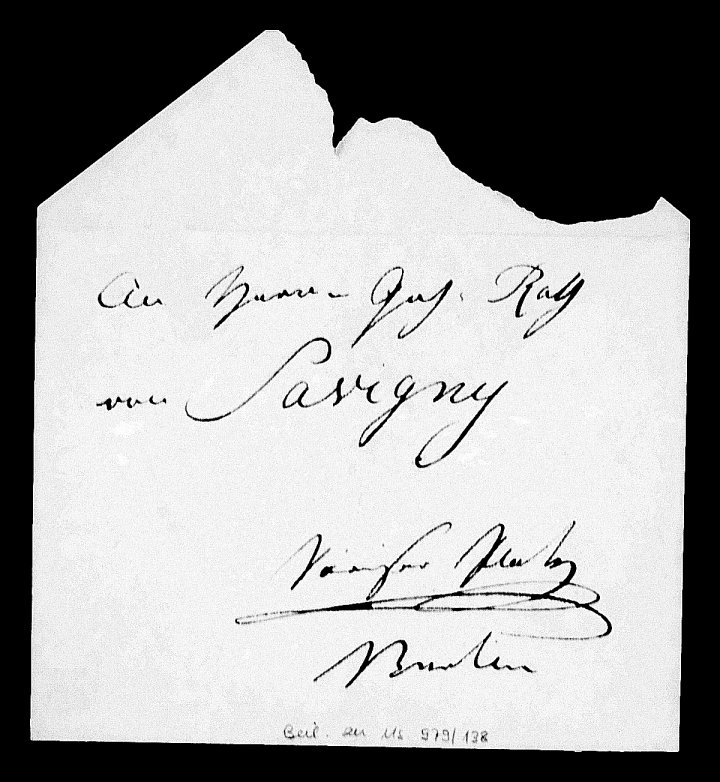 An Herrn Geh. Rath
von Savigny
Pariser Platz
Berlin
Beil. zu Ms 979/138